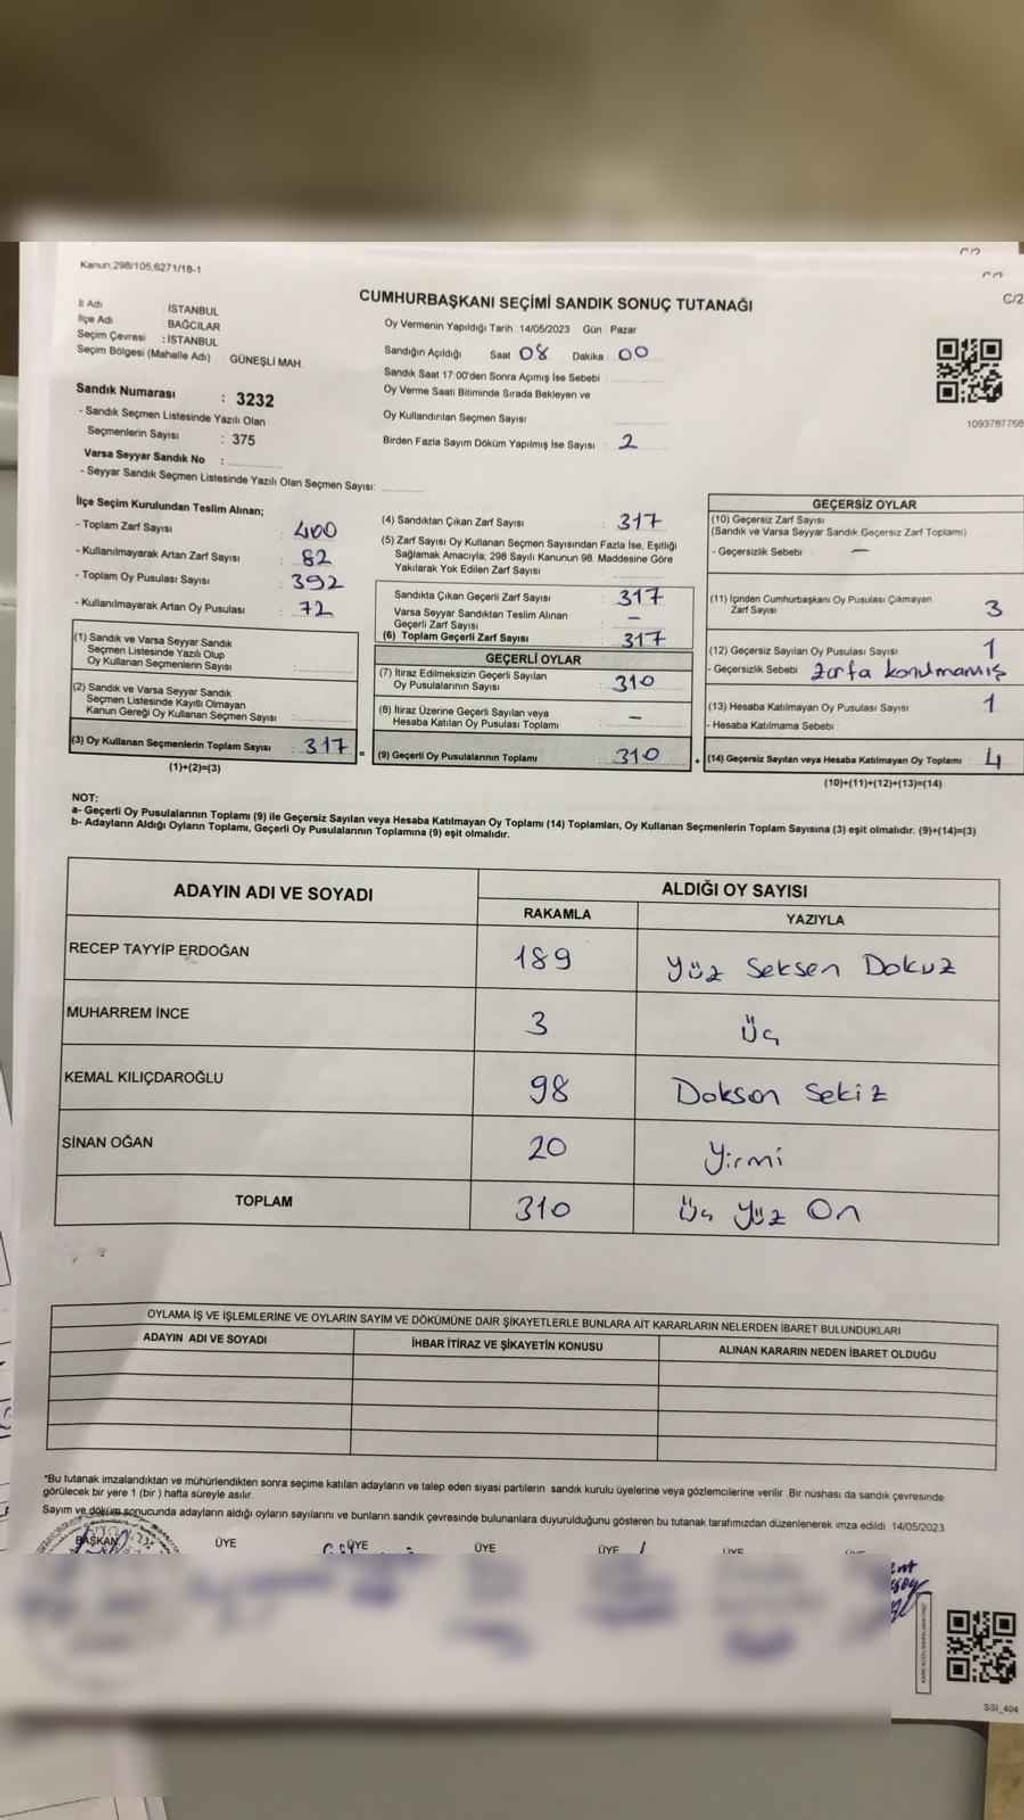 Kanun:298/105,6271/18-1
C/2
CUMHURBAŞKANI SEÇİMİ SANDIK SONUÇ TUTANAĞI
İl Adı İSTANBUL
İlçe Adı BAĞCILAR
Seçim Çevresi : İSTANBUL
Seçim Bölgesi (Mahalle Adı) GÜNEŞLİ MAH.
Sandık Numarası : 3232
- Sandık Seçmen Listesinde Yazılı Olan
Seçmenlerin Sayısı : 375
Varsa Seyyar Sandık No :
- Seyyar Sandık Seçmen Listesinde Yazılı Olan Seçmen Sayısı:
Oy Vermenin Yapıldığı Tarih 14/05/2023 Gün Pazar
Sandığın Açıldığı Saat 08 Dakika 00
Sandık Saat 17:00'den Sonra Açımış İse Sebebi
Oy Verme Saati Bitiminde Sırada Bekleyen ve
Oy Kullandırılan Seçmen Sayısı
Birden Fazla Sayım Döküm Yapılmış İse Sayısı 2
1093787768
İlçe Seçim Kurulundan Teslim Alınan;
- Toplam Zarf Sayısı : 400
- Kullanılmayarak Artan Zarf Sayısı : 82
- Toplam Oy Pusulası Sayısı : 392
- Kullanılmayarak Artan Oy Pusulası : 72
(1) Sandık ve Varsa Seyyar Sandık
Seçmen Listesinde Yazılı Olup
Oy Kullanan Seçmenlerin Sayısı
(2) Sandık ve Varsa Seyyar Sandık
Seçmen Listesinde Kayıtlı Olmayan
Kanun Gereği Oy Kullanan Seçmen Sayısı
(3) Oy Kullanan Seçmenlerin Toplam Sayısı : 317
(1)+(2)=(3)
(4) Sandıktan Çıkan Zarf Sayısı : 317
(5) Zarf Sayısı Oy Kullanan Seçmen Sayısından Fazla İse, Eşitliği
Sağlamak Amacıyla, 298 Sayılı Kanunun 98. Maddesine Göre
Yakılarak Yok Edilen Zarf Sayısı
Sandıkta Çıkan Geçerli Zarf Sayısı 317
Varsa Seyyar Sandıktan Teslim Alınan
Geçerli Zarf Sayısı -
(6) Toplam Geçerli Zarf Sayısı 317
GEÇERLİ OYLAR
(7) İtiraz Edilmeksizin Geçerli Sayılan
Oy Pusulalarının Sayısı 310
(8) İtiraz Üzerine Geçerli Sayılan veya
Hesaba Katılan Oy Pusulası Toplamı -
(9) Geçerli Oy Pusulalarının Toplamı 310
GEÇERSİZ OYLAR
(10) Geçersiz Zarf Sayısı
(Sandık ve Varsa Seyyar Sandık Geçersiz Zarf Toplamı)
- Geçersizlik Sebebi -
(11) İçinden Cumhurbaşkanı Oy Pusulası Çıkmayan
Zarf Sayısı 3
(12) Geçersiz Sayılan Oy Pusulası Sayısı 1
- Geçersizlik Sebebi zarfa konulmamış
(13) Hesaba Katılmayan Oy Pusulası Sayısı 1
- Hesaba Katılmama Sebebi
(14) Geçersiz Sayılan veya Hesaba Katılmayan Oy Toplamı 4
(10)+(11)+(12)+(13)=(14)
NOT:
a- Geçerli Oy Pusulalarının Toplamı (9) ile Geçersiz Sayılan veya Hesaba Katılmayan Oy Toplamı (14) Toplamları, Oy Kullanan Seçmenlerin Toplam Sayısına (3) eşit olmalıdır. (9)+(14)=(3)
b- Adayların Aldığı Oyların Toplamı, Geçerli Oy Pusulalarının Toplamına (9) eşit olmalıdır.
ADAYIN ADI VE SOYADI ALDIĞI OY SAYISI
RAKAMLA YAZIYLA
RECEP TAYYİP ERDOĞAN 189 Yüz Seksen Dokuz
MUHARREM İNCE 3 Üç
KEMAL KILIÇDAROĞLU 98 Doksan Sekiz
SİNAN OĞAN 20 Yirmi
TOPLAM 310 Üç Yüz On
OYLAMA İŞ VE İŞLEMLERİNE VE OYLARIN SAYIM VE DÖKÜMÜNE DAİR ŞİKAYETLERLE BUNLARA AİT KARARLARIN NELERDEN İBARET BULUNDUKLARI
ADAYIN ADI VE SOYADI İHBAR İTİRAZ VE ŞİKAYETİN KONUSU ALINAN KARARIN NEDEN İBARET OLDUĞU
*Bu tutanak imzalandıktan ve mühürlendikten sonra seçime katılan adayların ve talep eden siyasi partilerin sandık kurulu üyelerine veya gözlemcilerine verilir. Bir nüshası da sandık çevresinde
görülecek bir yere 1 (bir) hafta süreyle asılır.
Sayım ve döküm sonucunda adayların aldığı oyların sayılarını ve bunların sandık çevresinde bulunanlara duyurulduğunu gösteren bu tutanak tarafımızdan düzenlenerek imza edildi 14/05/2023
BAŞKAN ÜYE ÜYE ÜYE ÜYE ÜYE
SSI_404